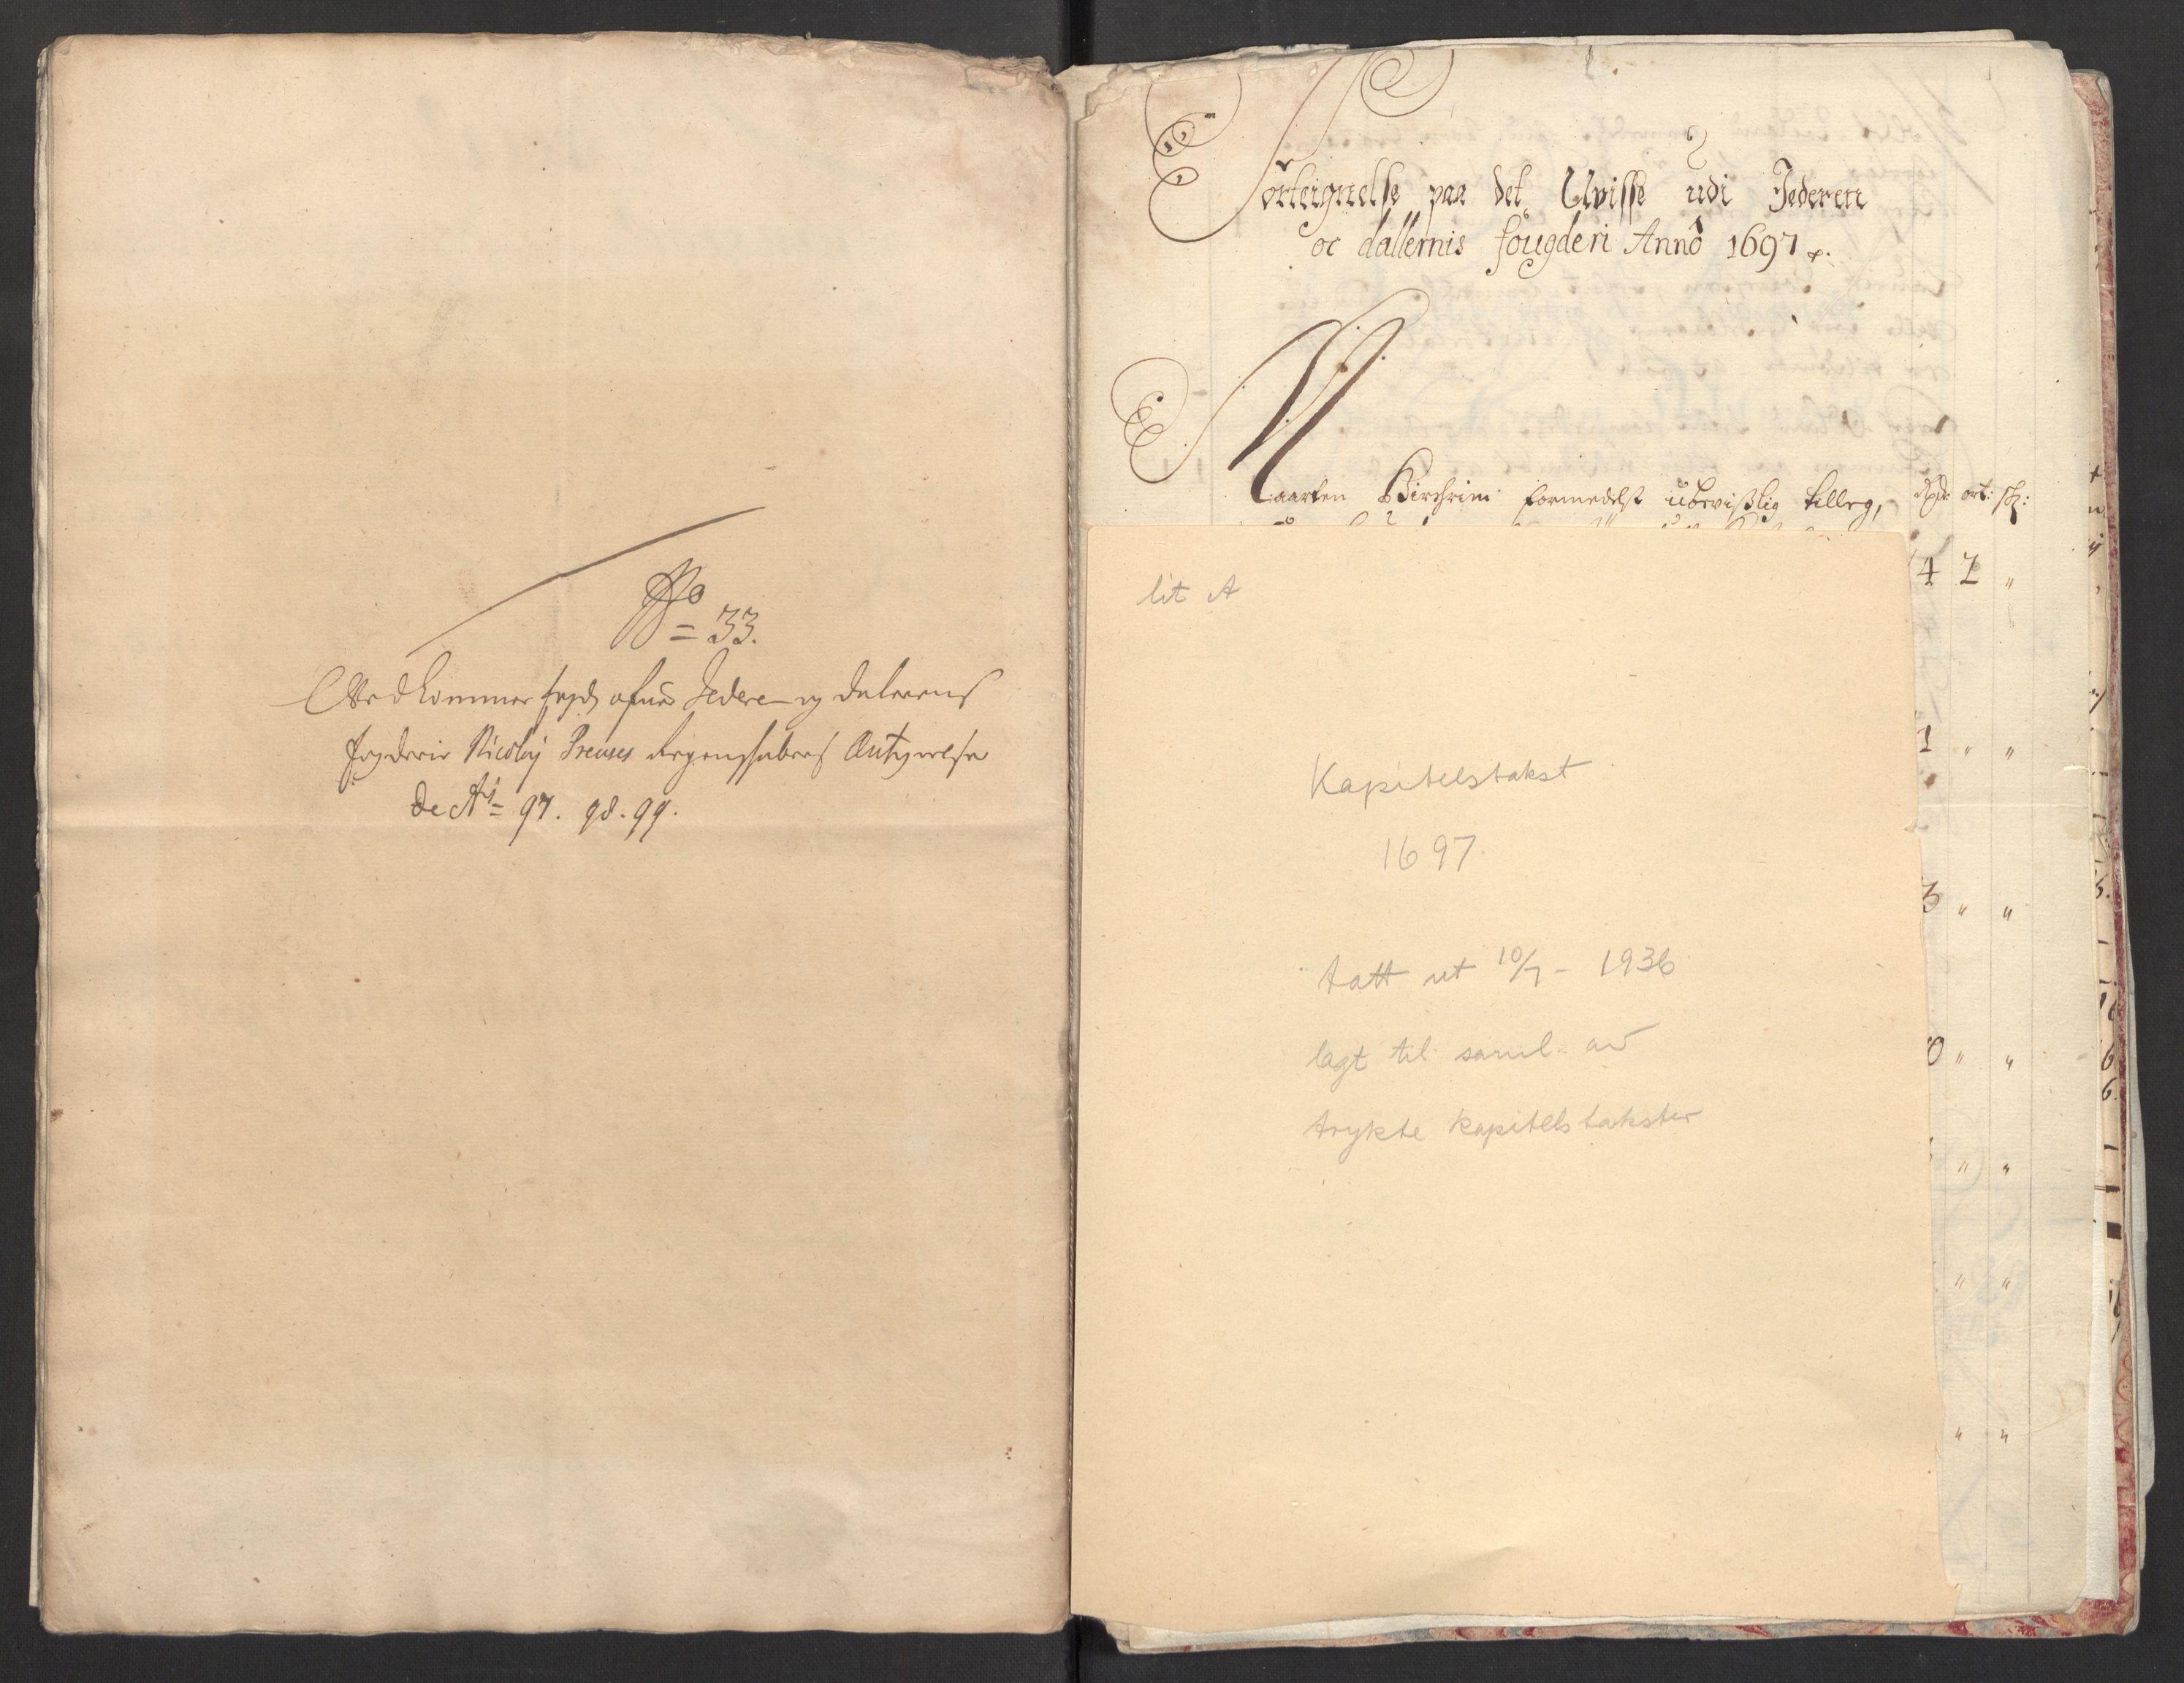 No
= 33.
Vedkommer
Jedere og dalernes
fogderie Nicolaj Preuses Regenschabers Antegnelse
de Aõ = 97. 98. 99.
2
Forteignelse paa det Uvisse udi Jederen
oc dallernis fougderi Anno 1697
Maarten Birchrim formedelst ubevißlig tilleg, Rdr ort: sh:
4 2 "
1 " "
3 " "
0 " "
" "
" "
" "
lit A
Kapitelstakst
1697
tatt ut 10/7 - 1936
lagt til saml. av
trykte kapitelstakster